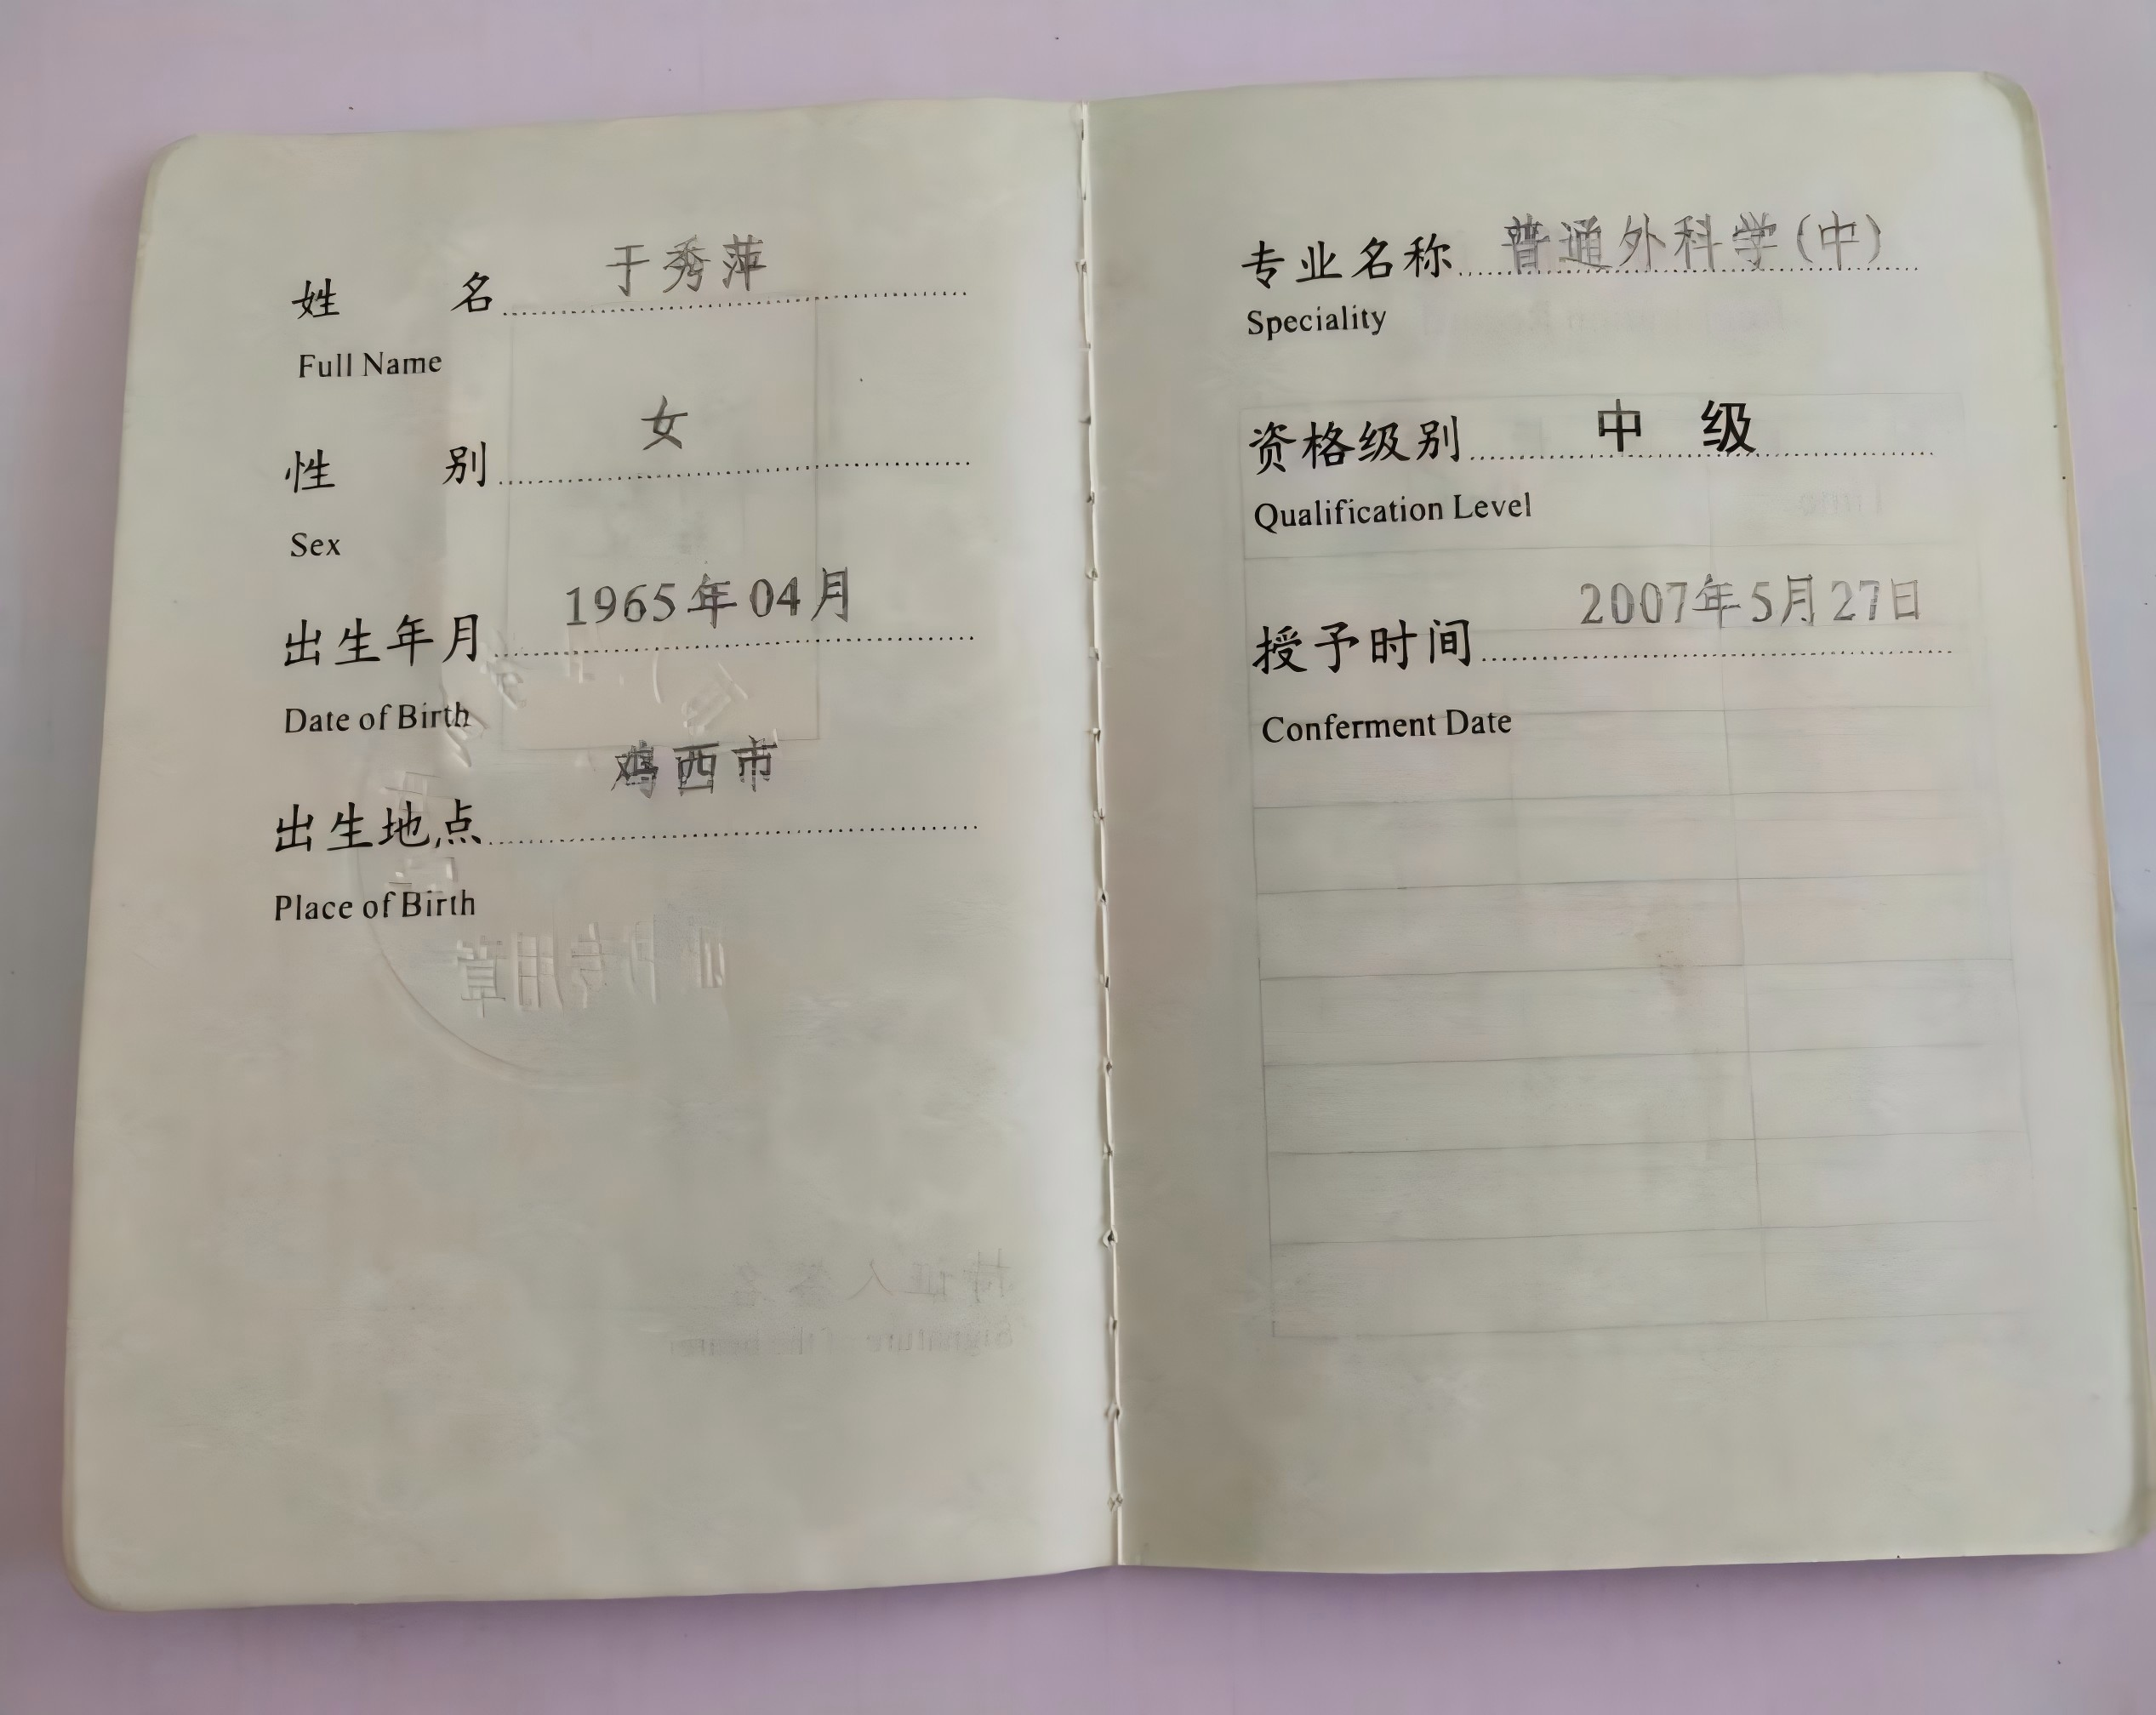 姓 名 于秀萍
Full Name
性 别 女
Sex
出生年月 1965年04月
Date of Birth
出生地点 鸡西市
Place of Birth
专用章
持证人签名
Signature of the bearer
专业名称 普通外科学(中)
Speciality
资格级别 中 级
Qualification Level
授予时间 2007年5月27日
Conferment Date